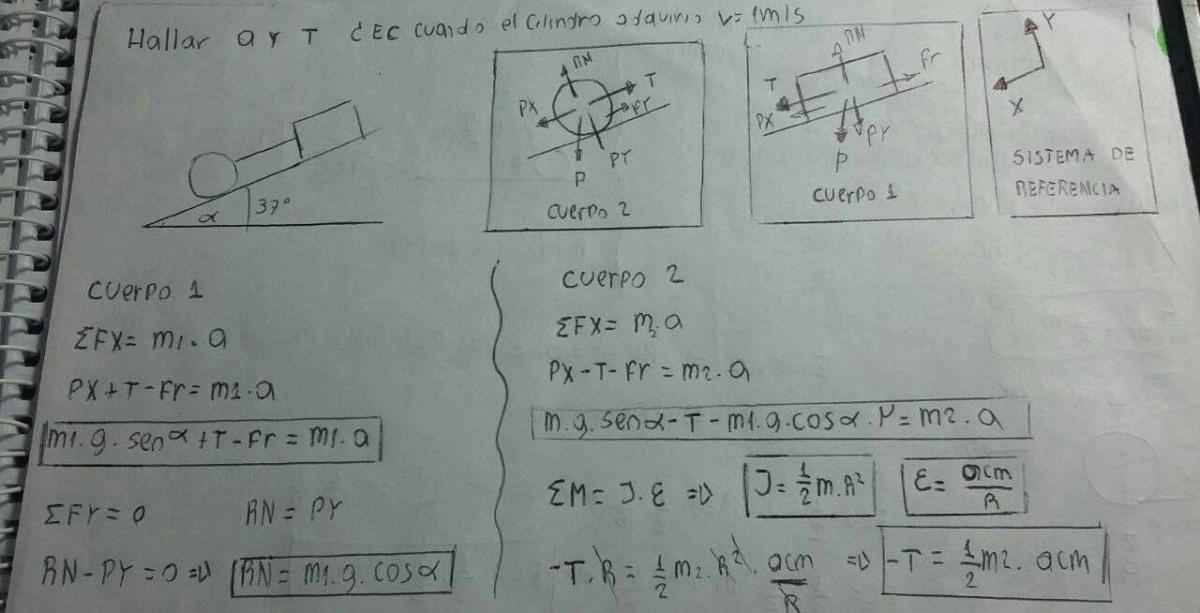 Hallar a y T ¿EC cuando el cilindro adquirio V=1m/s
RN
T
Fr
PX
PY
P
cuerpo 2
RN
Fr
T
PX
PY
P
cuerpo 1
Y
X
SISTEMA DE
REFERENCIA
α
37°
cuerpo 1
ΣFX = m1.a
PX+T-Fr = m1.a
m1.g.senα+T-Fr = m1.a
ΣFY=0 RN = PY
RN-PY=0 => RN = m1.g.cosα
cuerpo 2
ΣFX = m2.a
PX-T-Fr = m2.a
m.g.senα-T-m1.g.cosα.μ = m2.a
ΣM = J.ε => J = 1/2 m.R² ε = acm/R
-T.R = 1/2 m2.R². acm/R => -T = 1/2 m2. acm